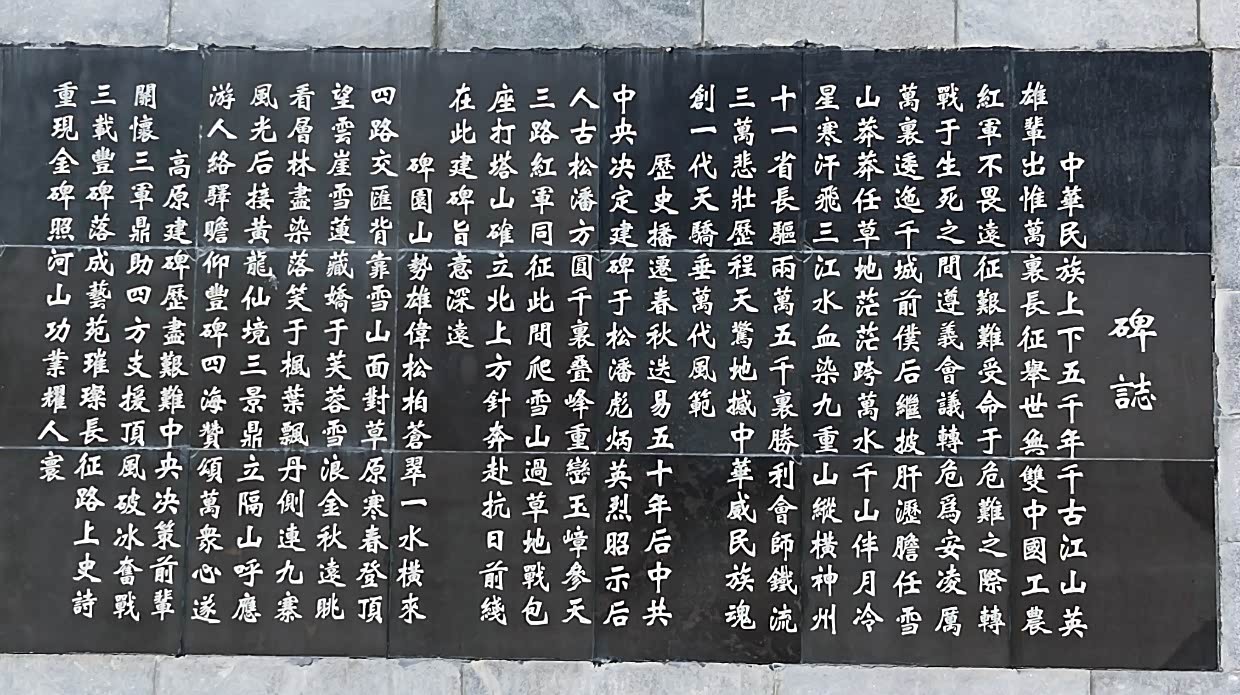 碑誌
中華民族上下五千年千古江山英
雄輩出惟萬裏長征舉世無雙中國工農
紅軍不畏遠征艱難受命于危難之際轉
戰于生死之間遵義會議轉危爲安凌厲
萬裏逶迤千城前僕后繼披肝瀝膽任雪
山莽莽任草地茫茫跨萬水千山伴月冷
星寒汗飛三江水血染九重山縱橫神州
十一省長驅兩萬五千裏勝利會師鐵流
三萬悲壯歷程天驚地撼中華威民族魂
創一代天驕垂萬代風範
歷史播遷春秋迭易五十年后中共
中央决定建碑于松潘彪炳英烈昭示后
人古松潘方圓千裏叠峰重巒玉嶂參天
三路紅軍同征此間爬雪山過草地戰包
座打塔山確立北上方針奔赴抗日前綫
在此建碑旨意深遠
碑園山勢雄偉松柏蒼翠一水橫來
四路交匯背靠雪山面對草原寒春登頂
望雲崖雪蓮藏嬌于芙蓉雪浪金秋遠眺
看層林盡染落笑于楓葉飄丹側連九寨
風光后接黃龍仙境三景鼎立隔山呼應
游人絡驛瞻仰豐碑四海贊頌萬衆心遂
高原建碑歷盡艱難中央决策前輩
關懷三軍鼎助四方支援頂風破冰奮戰
三載豐碑落成藝苑璀璨長征路上史詩
重現金碑照河山功業耀人寰